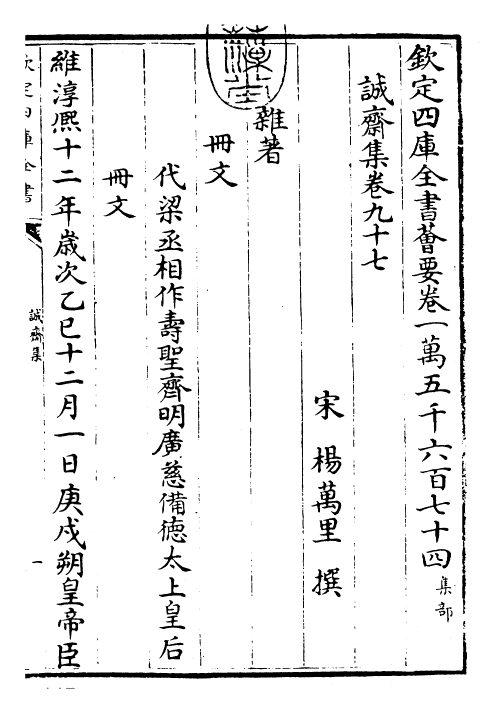 欽定四庫全書薈要卷一萬五千六百七十四集部
誠齋集卷九十七
宋楊萬里撰
雜著
冊文
代梁丞相作壽聖齊明廣慈備德太上皇后
冊文
維淳熈十二年歳次乙巳十二月一日庚戌朔皇帝臣
欽定四庫全書
誠齋集
一